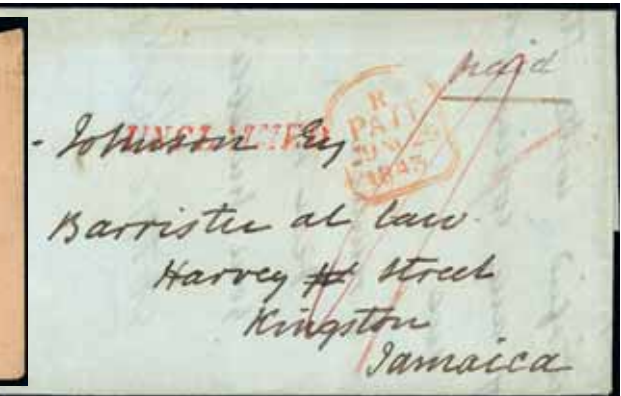 paid
R
PAID
1843
UNCLAIMED
- Johnson Esq
Barrister at law.
Harvey Street
Kingston
Jamaica